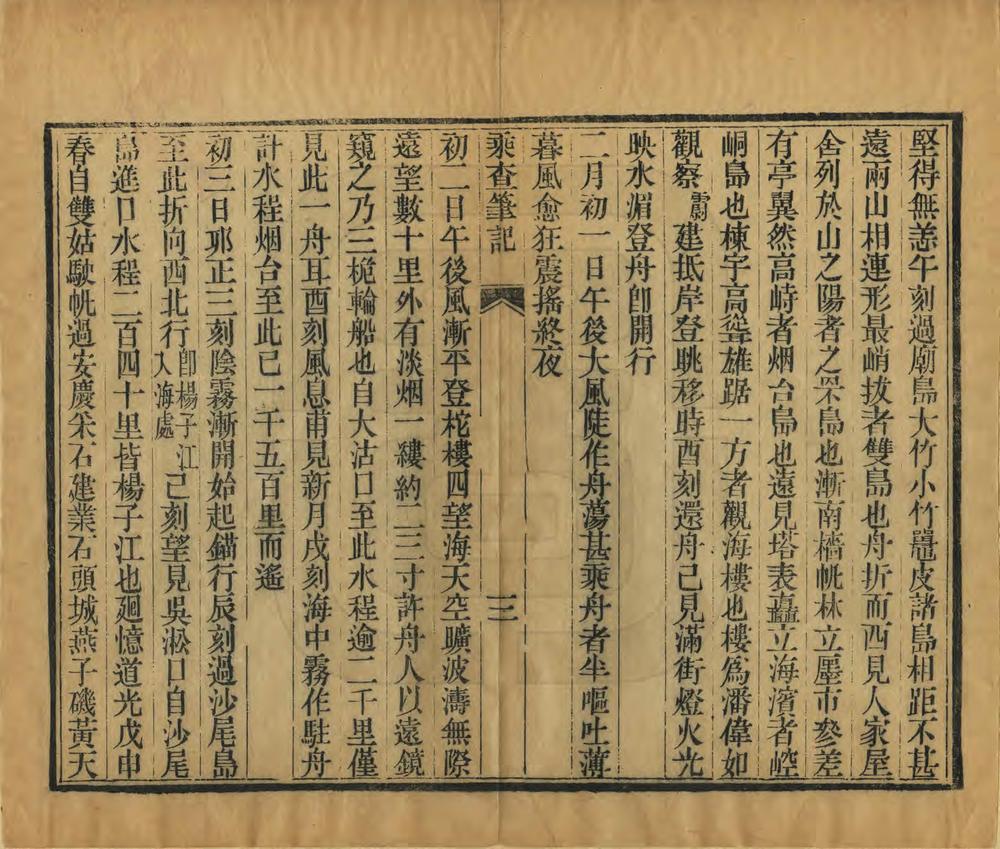 堅得無恙午刻過廟島大竹小竹鼉皮諸島相距不甚
遠兩山相連形最峭拔者雙島也舟折而西見人家屋
舍列於山之陽者之罘島也漸南檣帆林立廛市參差
有亭翼然高峙者烟台島也遠見塔表矗立海濱者崆
峒島也棟宇高聳雄踞一方者觀海樓也樓爲潘偉如
觀察霨建抵岸登眺移時酉刻還舟己見滿街燈火光
映水湄登舟卽開行
二月初一日午後大風陡作舟蕩甚乘舟者半嘔吐薄
暮風愈狂震搖終夜
乘查筆記 三
初二日午後風漸平登柁樓四望海天空曠波濤無際
遠望數十里外有淡烟一縷約二三寸許舟人以遠鏡
窺之乃三桅輪船也自大沽口至此水程逾二千里僅
見此一舟耳酉刻風息甫見新月戌刻海中霧作駐舟
計水程烟台至此已一千五百里而遙
初三日卯正三刻陰霧漸開始起錨行辰刻過沙尾島
至此折向西北行卽楊子江入海處己刻望見吳淞口自沙尾
島進口水程二百四十里皆楊子江也廻憶道光戊申
春自雙姑駛帆過安慶采石建業石頭城燕子磯黃天